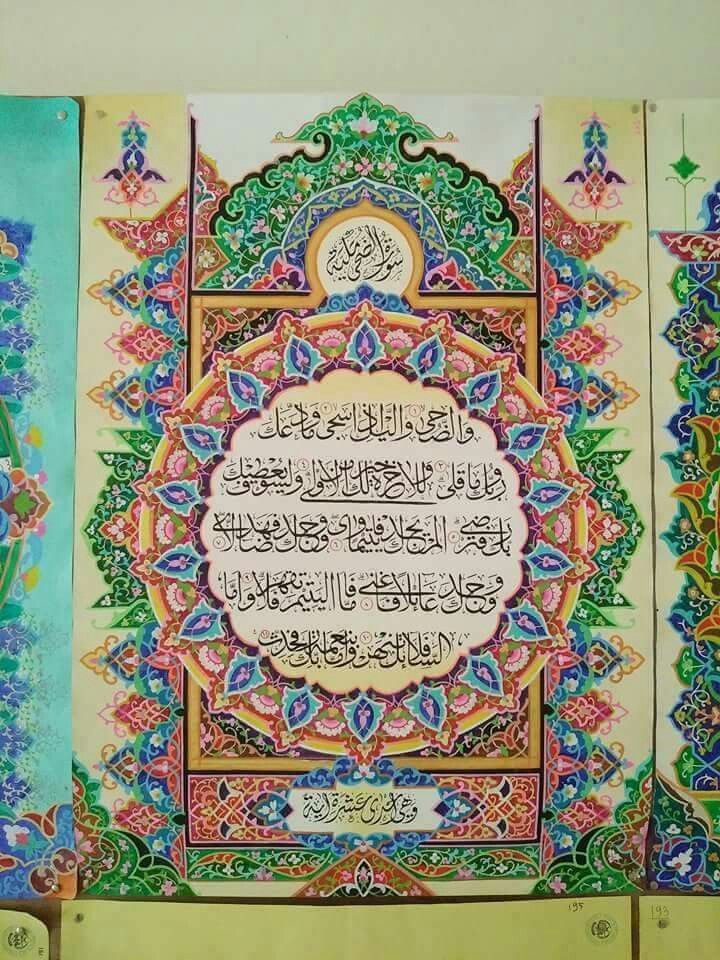 سورة الضحى مكية
والضحى ١ واليل اذا سجى ٢ ما ودعك
ربك وما قلى ٣ وللاخرة خير لك من الاولى ٤ ولسوف يعطيك
ربك فترضى ٥ الم يجدك يتيما فاوى ٦ ووجدك ضالا فهدى ٧
ووجدك عائلا فاغنى ٨ فاما اليتيم فلا تقهر ٩ واما
السائل فلا تنهر ١٠ واما بنعمة ربك فحدث ١١
وهي احدى عشرة اية
195
193